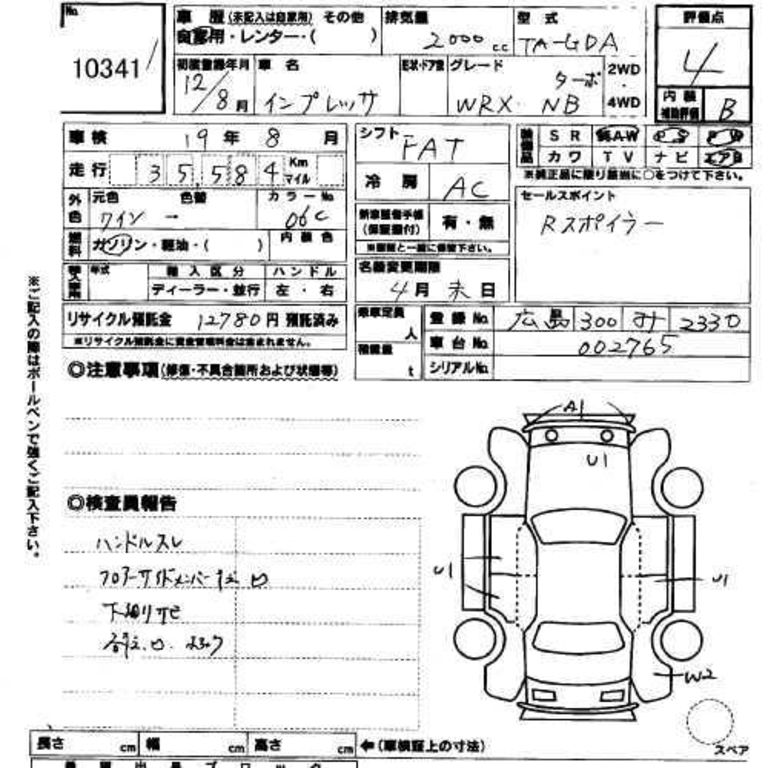 No.
10341
車歴 (未記入は自家用) その他
自家用・レンター・( )
排気量
2000 cc
型式
TA-GDA
評価点
4
内装
補助評価
B
初度登録年月
12/8月
車名
インプレッサ
グレード
ターボ
WRX NB
2WD
・
4WD
車検 19年 8月
走行 35,584 Km
マイル
外色
元色 色替 カラーNo
ワイン → 06C
燃料
ガソリン・軽油・( )
内装色
年式
輸入区分
ハンドル
ディーラー・並行
左・右
リサイクル預託金 12780円 預託済み
※リサイクル預託金に資金管理料金は含まれません。
シフト
FAT
冷房
AC
(保証書付)
有・無
名義変更期限
4月末日
乗車定員
人
積載量
t
装備品
SR AW PS PW
カワ TV ナビ エアB
※純正品に限り該当に○をつけて下さい。
セールスポイント
Rスポイラー
登録No. 広島 300 す 2330
車台No. 002765
シリアルNo.
◎注意事項(修復・不具合箇所および状態等)
◎検査員報告
ハンドルスレ
下廻りサビ
A1
U1
U1
U1
W2
スペア
※ご記入の際はボールペンで強くご記入下さい。
長さ cm 幅 cm 高さ cm ←(車検証上の寸法)